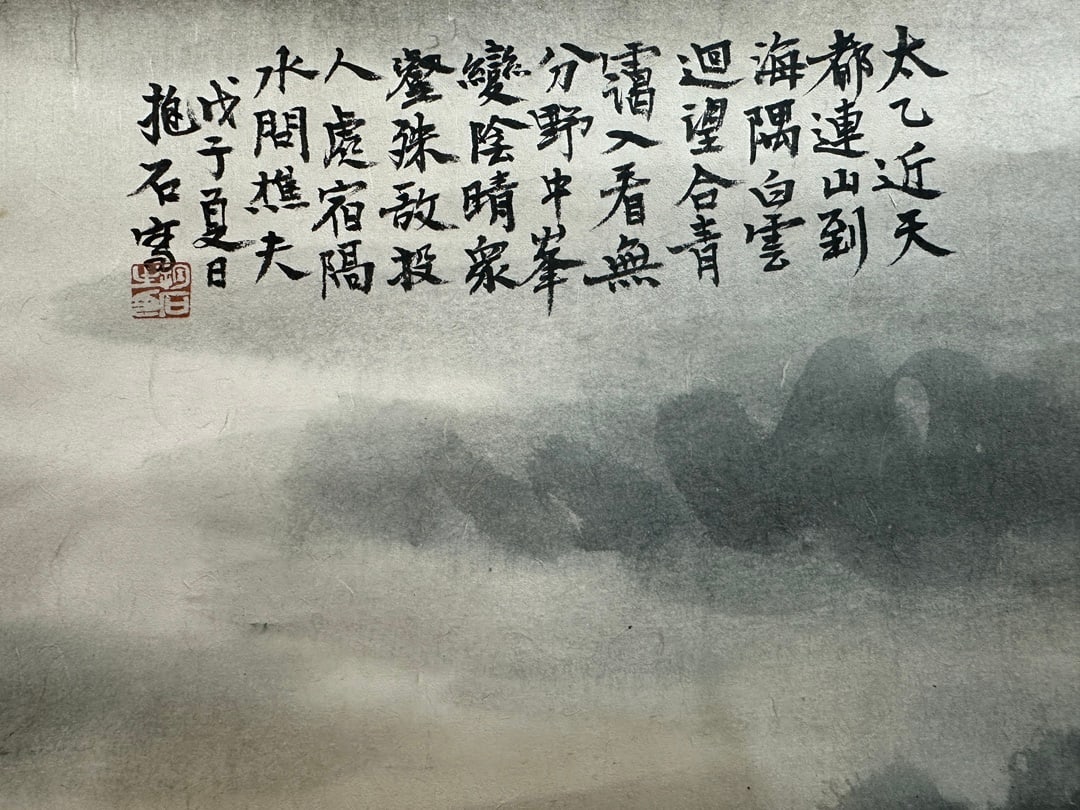 太乙近天
都連山到
海隅白雲
迴望合青
靄入看無
分野中峯
變陰晴眾
壑殊欲投
人處宿隔
水問樵夫
戊子夏日
抱石寫